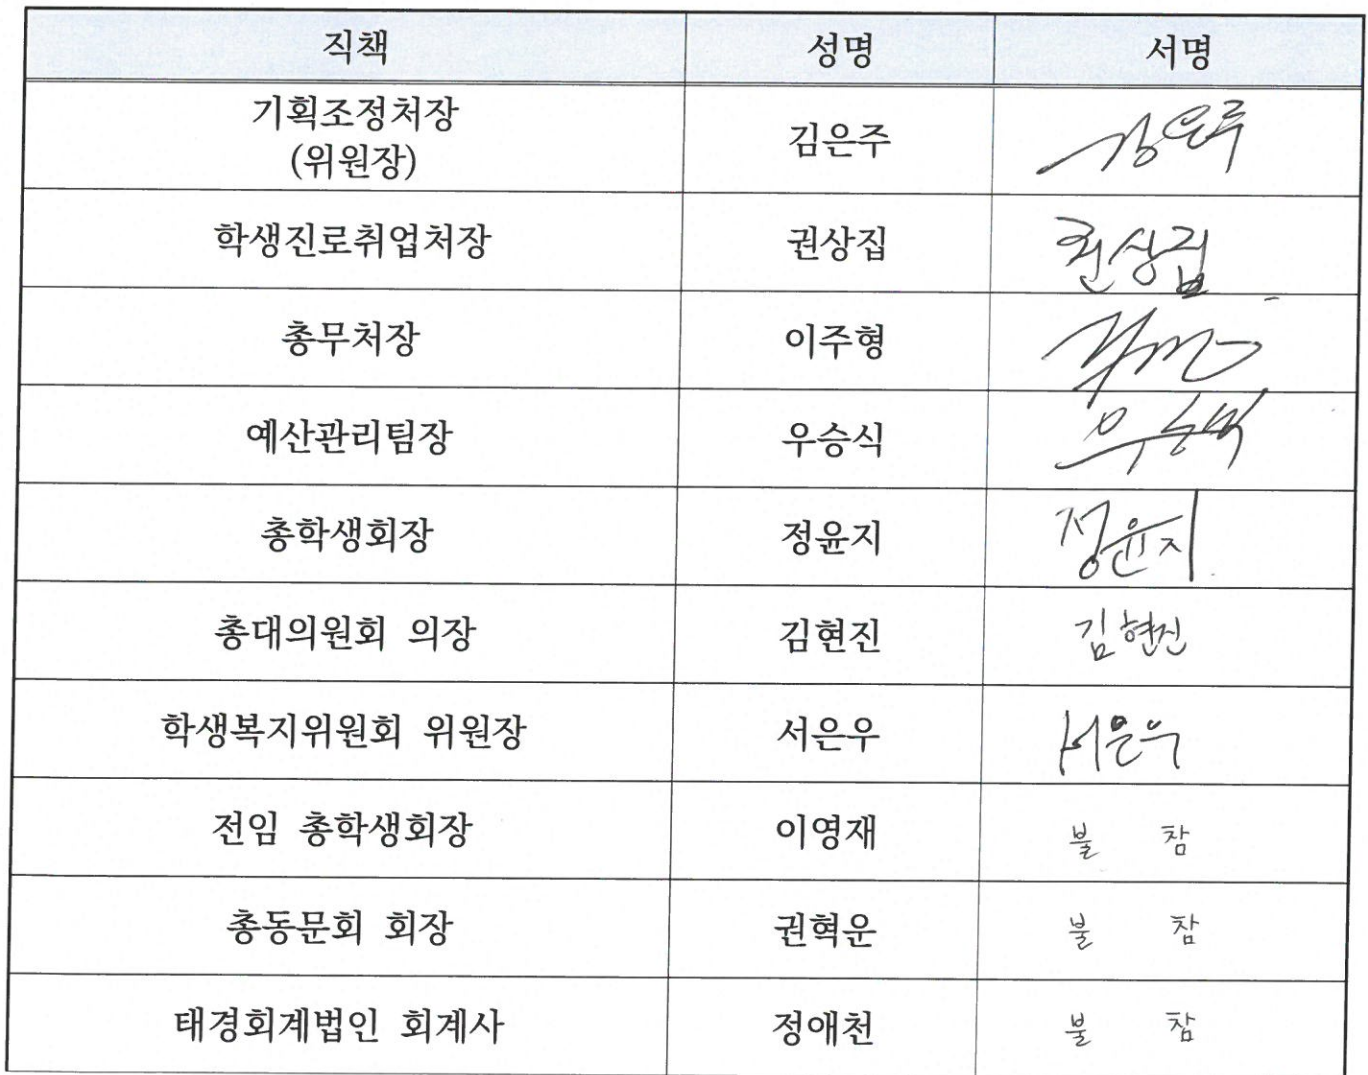 직책 성명 서명
기획조정처장
(위원장) 김은주 김은주
학생진로취업처장 권상집 권상집
총무처장 이주형
예산관리팀장 우승식 우승식
총학생회장 정윤지 정윤지
총대의원회 의장 김현진 김현진
학생복지위원회 위원장 서은우 서은우
전임 총학생회장 이영재 불 참
총동문회 회장 권혁운 불 참
태경회계법인 회계사 정애천 불 참